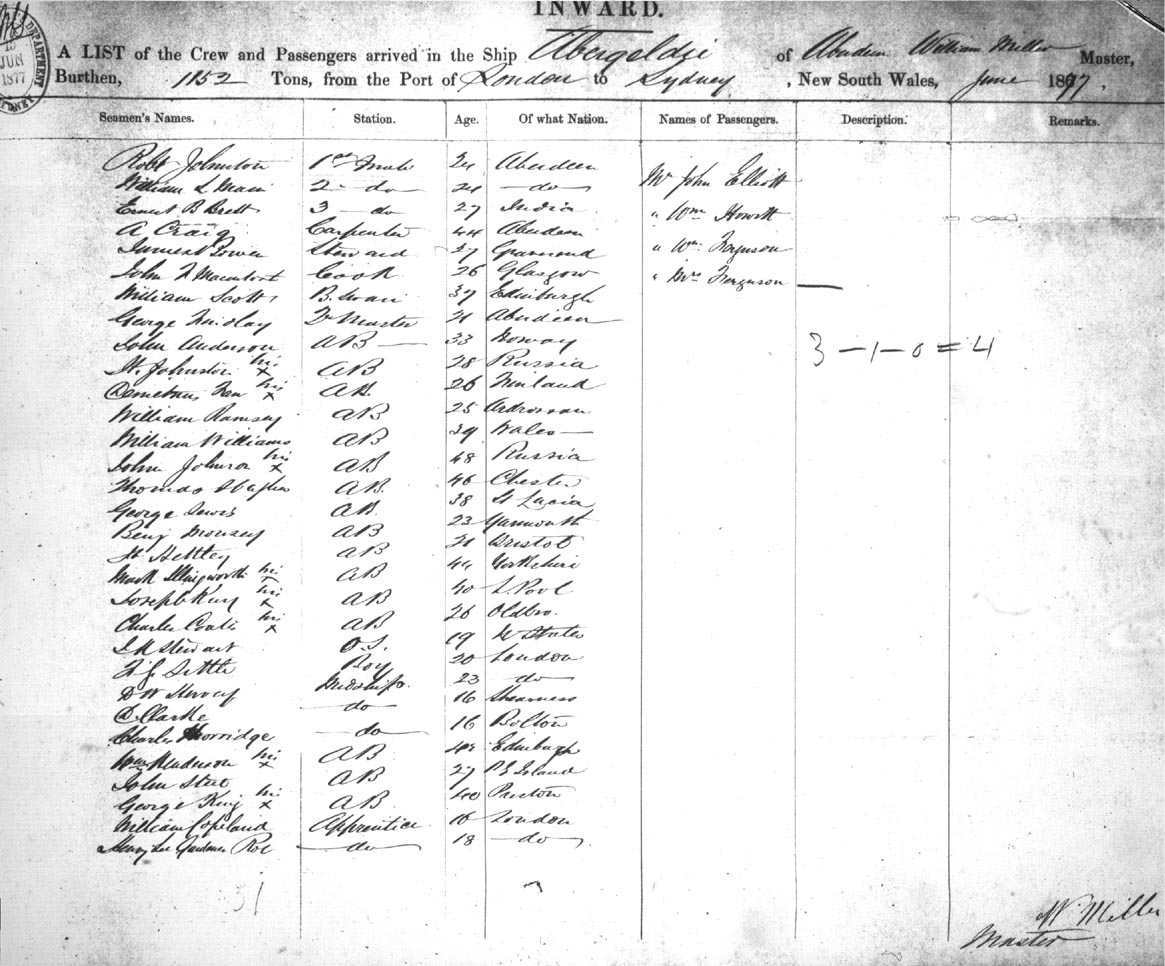 INWARD.
A LIST of the Crew and Passengers arrived in the Ship Abergeldie of Aberdeen William Miller Master,
Burthen, 1152 Tons, from the Port of London to Sydney, New South Wales, June 1877.
DEPARTMENT
JUN
1877
SYDNEY
Seamen's Names. Station. Age. Of what Nation. Names of Passengers. Description. Remarks.
Robt Johnston 1st Mate 24 Aberdeen
William L Main 2 - do 21 - do - Mr John Elliott
Ernest B Brett 3 - do 27 India " Wm Howett
A Craig Carpenter 44 Aberdeen
Power Steward 27 " Wm Ferguson
John Macintosh Cook 26 Glasgow " Mrs Ferguson
William Scott B. Swain 37 Edinburgh
George Findlay 21 Aberdeen
John Anderson AB 33 Norway 3 - 1 - 0 = 4
Johnston his x AB 28 Russia
his x AB 26 Finland
William Ramsey AB 25 Ardrossan
William Williams AB 39 Wales
John Johnson his x AB 48 Russia
Thomas AB 46 Chester
George Lewis AB 38 St Lucia
Benj Mousey AB 23 Yarmouth
Hettley AB 21 Bristol
Mark Illingworth his AB 44 Yorkshire
Joseph Kay his x AB 40 L. Pool
Charles Coats his x AB 26 Oldbro.
Stewart O.S. 19 W States
Settle Boy 20 London
D W Midship. 23 - do
D. Clarke - do - 16 Sheerness
Charles Horridge - do - 16 Bolton
Wm Henderson his x AB Edinburgh
John Steet AB 27 P E Island
George King his x AB 40 Preston
William Copeland Apprentice 16 London
Henry Lee Gardner Roe - do - 18 - do -
31
W. Miller
Master